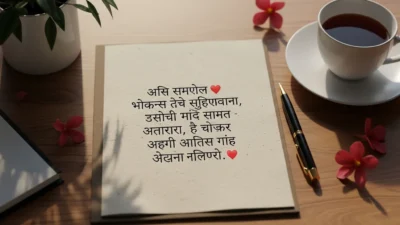 असि समणेल ❤️
भोकन्स तेचे सुहिणवाना,
डसोची मांदे सामत
अतारारा, है चोकर
अहगी आतिस गांह
नलिणरो.❤️